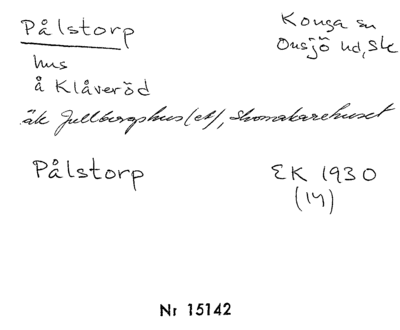 Pålstorp
Konga sn
Onsjö hd, Sk
hus
å Klåveröd
äk Gullbergshus(et), Skomakarehuset
Pålstorp
EK 1930
(14)
Nr 15142